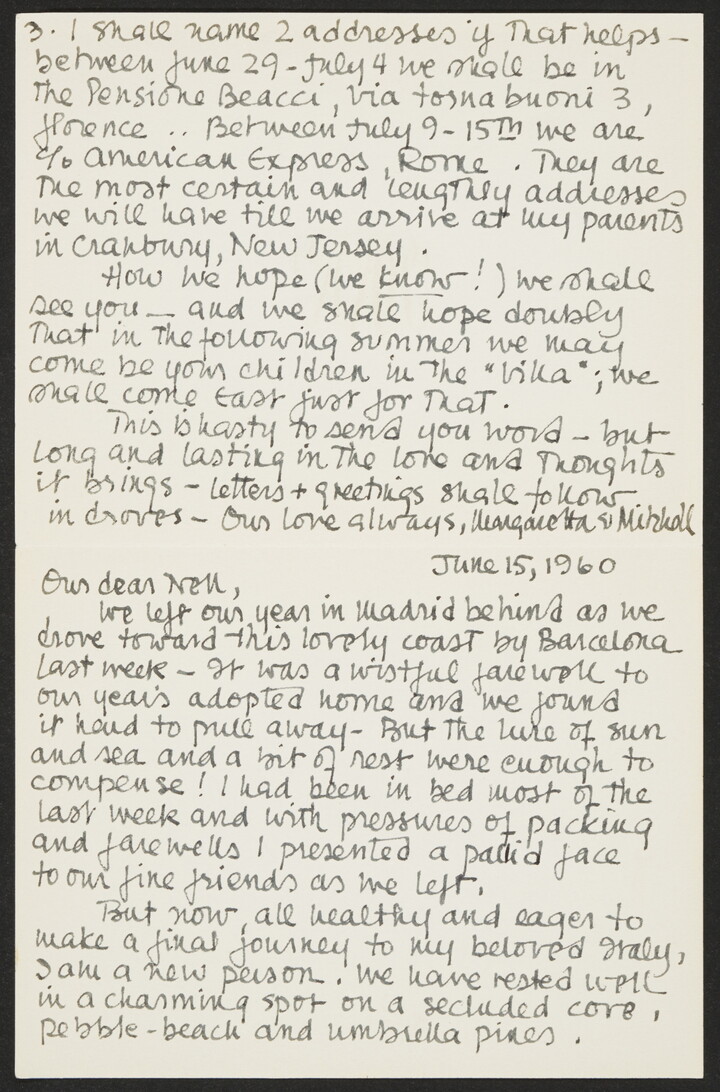 3. I shall name 2 addresses if that helps –
between June 29 - July 4 we shall be in
the Pensione Beacci, Via Tornabuoni 3,
Florence .. Between July 9 - 15TH we are
c/o American Express, Rome . They are
the most certain and lengthly addresses
we will have till we arrive at my parents
in Cranbury, New Jersey .
How we hope (we know!) we shall
see you — and we shall hope doubly
that in the following summer we may
come be your children in the "Villa"; we
shall come East just for that .
This is hasty to send you word – but
long and lasting in the love and thoughts
it brings – letters + greetings shall follow
in droves – Our love always, Margaretta & Mitchell
June 15, 1960
Our dear Nell,
We left our year in Madrid behind as we
drove toward this lovely coast by Barcelona
last week – It was a wistful farewell to
our year's adopted home and we found
it hard to pull away – But the lure of sun
and sea and a bit of rest were enough to
compense ! I had been in bed most of the
last week and with pressures of packing
and farewells I presented a pallid face
to our fine friends as we left.
But now, all healthy and eager to
make a final journey to my beloved Italy,
I am a new person . We have rested well
in a charming spot on a secluded cove,
pebble-beach and umbrella pines .